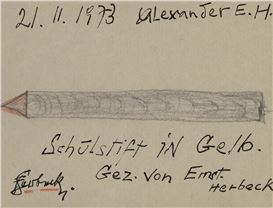 21. 11. 1973 Alexander E. H.
Schulstift in Gelb.
Gez. von Ernst.
Herbeck
Herbeck